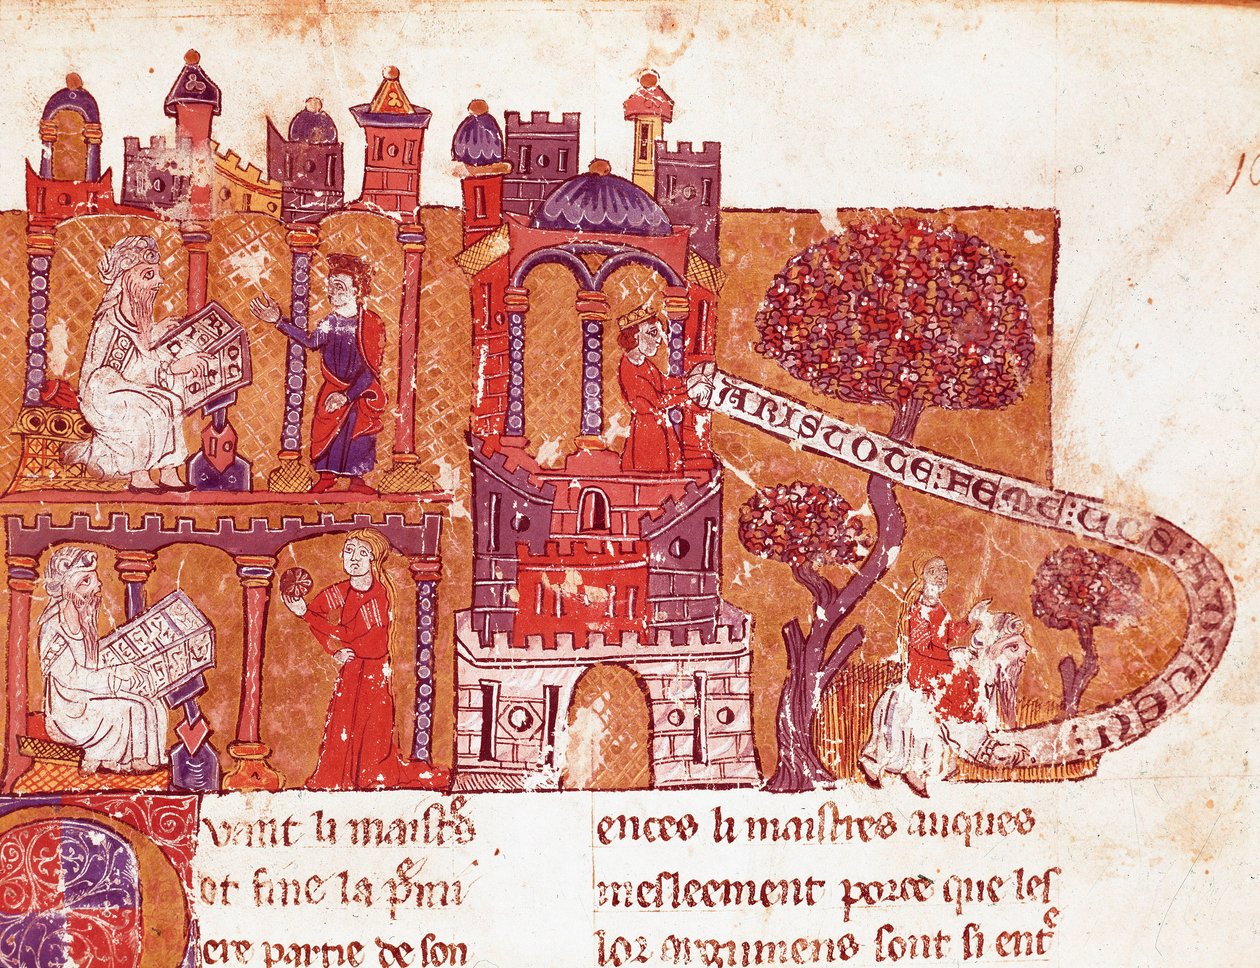 ARISTOTE : FEME : UOS :
Quant li maistres
ot fine la pmi
ere partie de son
ences li maistres auques
mesleement porce que les
lor argumens sont si ent